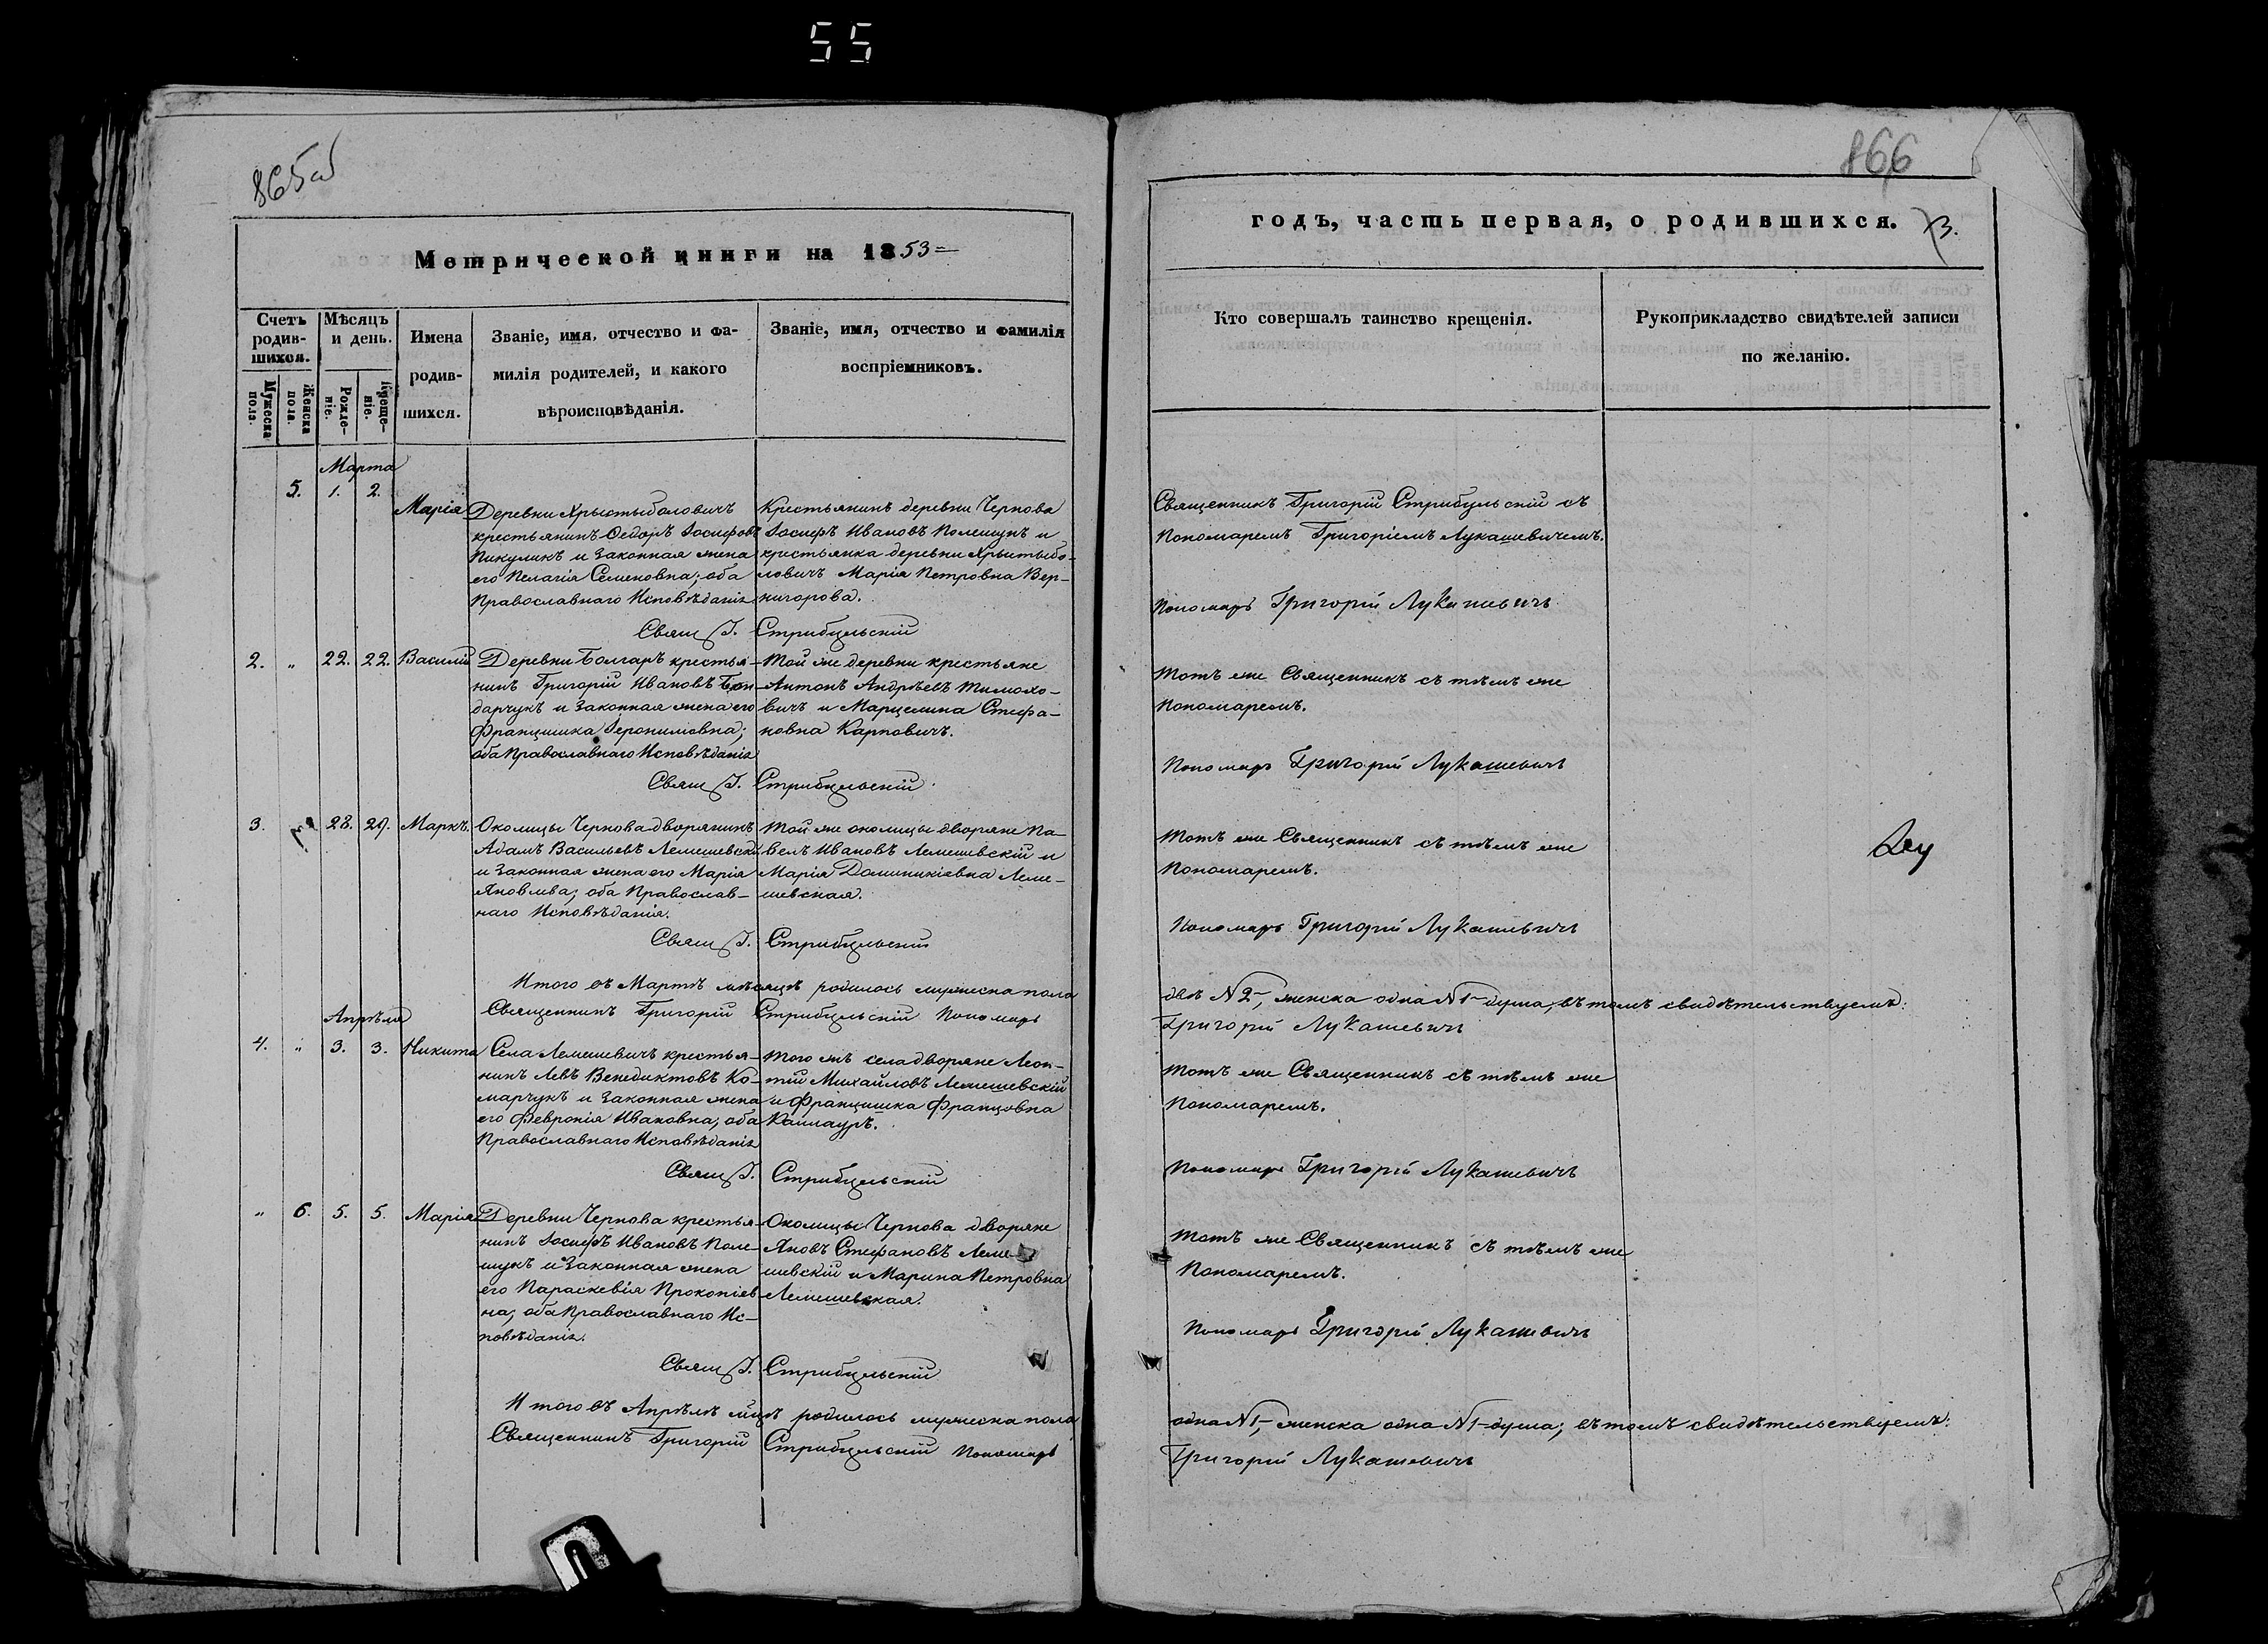 55
865об
866
Метрической книги на 1853
годъ, часть первая, о родившихся.
3.
Счетъ родив-шихся.
Мѣсяцъ и день.
Имена родив-шихся.
Званіе, имя, отчество и фа-
милія родителей, и какого
вѣроисповѣданія.
Званіе, имя, отчество и фамилія
воспріемниковъ.
Кто совершалъ таинство крещенія.
Рукоприкладство свидѣтелей записи
по желанію.
Мужеска пола.
Женска пола.
Рожде-ніе.
Креще-ніе.
Марта
5. 1. 2.
Марія
Деревни Хрыстыболовичъ
крестьянинъ Ѳедоръ Іосифовъ
Пикуликъ и законная жена
его Пелагія Семеновна; оба
Православнаго Исповѣданія
Крестьянинъ деревни Чернова
Іосифъ Ивановъ Полещукъ и
крестьянка деревни Хрыстыбо-
ловичъ Марія Петровна Вер-
нигорова.
Свящ Г. Стрибульскій
Священникъ Григорій Стрибульскій съ
Пономаремъ Григоріемъ Лукашевичемъ.
Пономарь Григорій Лукашевичъ
2. " 22. 22. Василій
Деревни Болгаръ крестья-
нинъ Григорій Ивановъ Бон-
дарчукъ и законная жена его
Францишка Іеронимовна;
оба Православнаго Исповѣданія
Той же деревни крестьяне
Антонъ Андреевъ Тимохо-
вичъ и Марцелина Стефа-
новна Карповичъ.
Свящ Г. Стрибульскій
Тотъ же Священникъ съ тѣмъ же
Пономаремъ.
Пономарь Григорій Лукашевичъ
3. 28. 29. Маркъ.
Околицы Чернова дворянинъ
Адамъ Васильевъ Лемешевскій
и законная жена его Марія
Яковлева; оба Православ-
наго Исповѣданія.
Той же околицы дворяне Па-
велъ Ивановъ Лемешевскій и
Марія Доминикіевна Леме-
шевская.
Свящ Г. Стрибульскій
Тотъ же Священникъ съ тѣмъ же
Пономаремъ.
Пономарь Григорій Лукашевичъ
Итого въ Мартѣ мѣсяцѣ родилось мужеска пола
двѣ N 2, женска одна N 1 душа; въ томъ свидѣтельствуемъ:
Священникъ Григорій Стрибульскій Пономарь
Григорій Лукашевичъ
Апрѣля
4. " 3. 3. Никита
Села Лемешевичъ крестья-
нинъ Левъ Венедиктовъ Ко-
марчукъ и законная жена
его Февронія Ивановна; оба
Православнаго Исповѣданія
Того жъ села дворяне Леон-
тій Михайловъ Лемешевскій
и Францишка Францовна
Каллауръ.
Свящ Г. Стрибульскій
Тотъ же Священникъ съ тѣмъ же
Пономаремъ.
Пономарь Григорій Лукашевичъ
" 6. 5. 5. Марія
Деревни Чернова крестья-
нинъ Іосифъ Ивановъ Поле-
щукъ и законная жена
его Параскевія Прокопіев-
на; оба Православнаго Ис-
повѣданія.
Околицы Чернова дворяне
Яковъ Стефановъ Леме-
шевскій и Марина Петровна
Лемешевская.
Свящ Г. Стрибульскій
Тотъ же Священникъ съ тѣмъ же
Пономаремъ.
Пономарь Григорій Лукашевичъ
Итого въ Апрѣлѣ мцѣ родилось мужеска пола
одна N 1, женска одна N 1 душа; въ томъ свидѣтельствуемъ:
Священникъ Григорій Стрибульскій Пономарь
Григорій Лукашевичъ